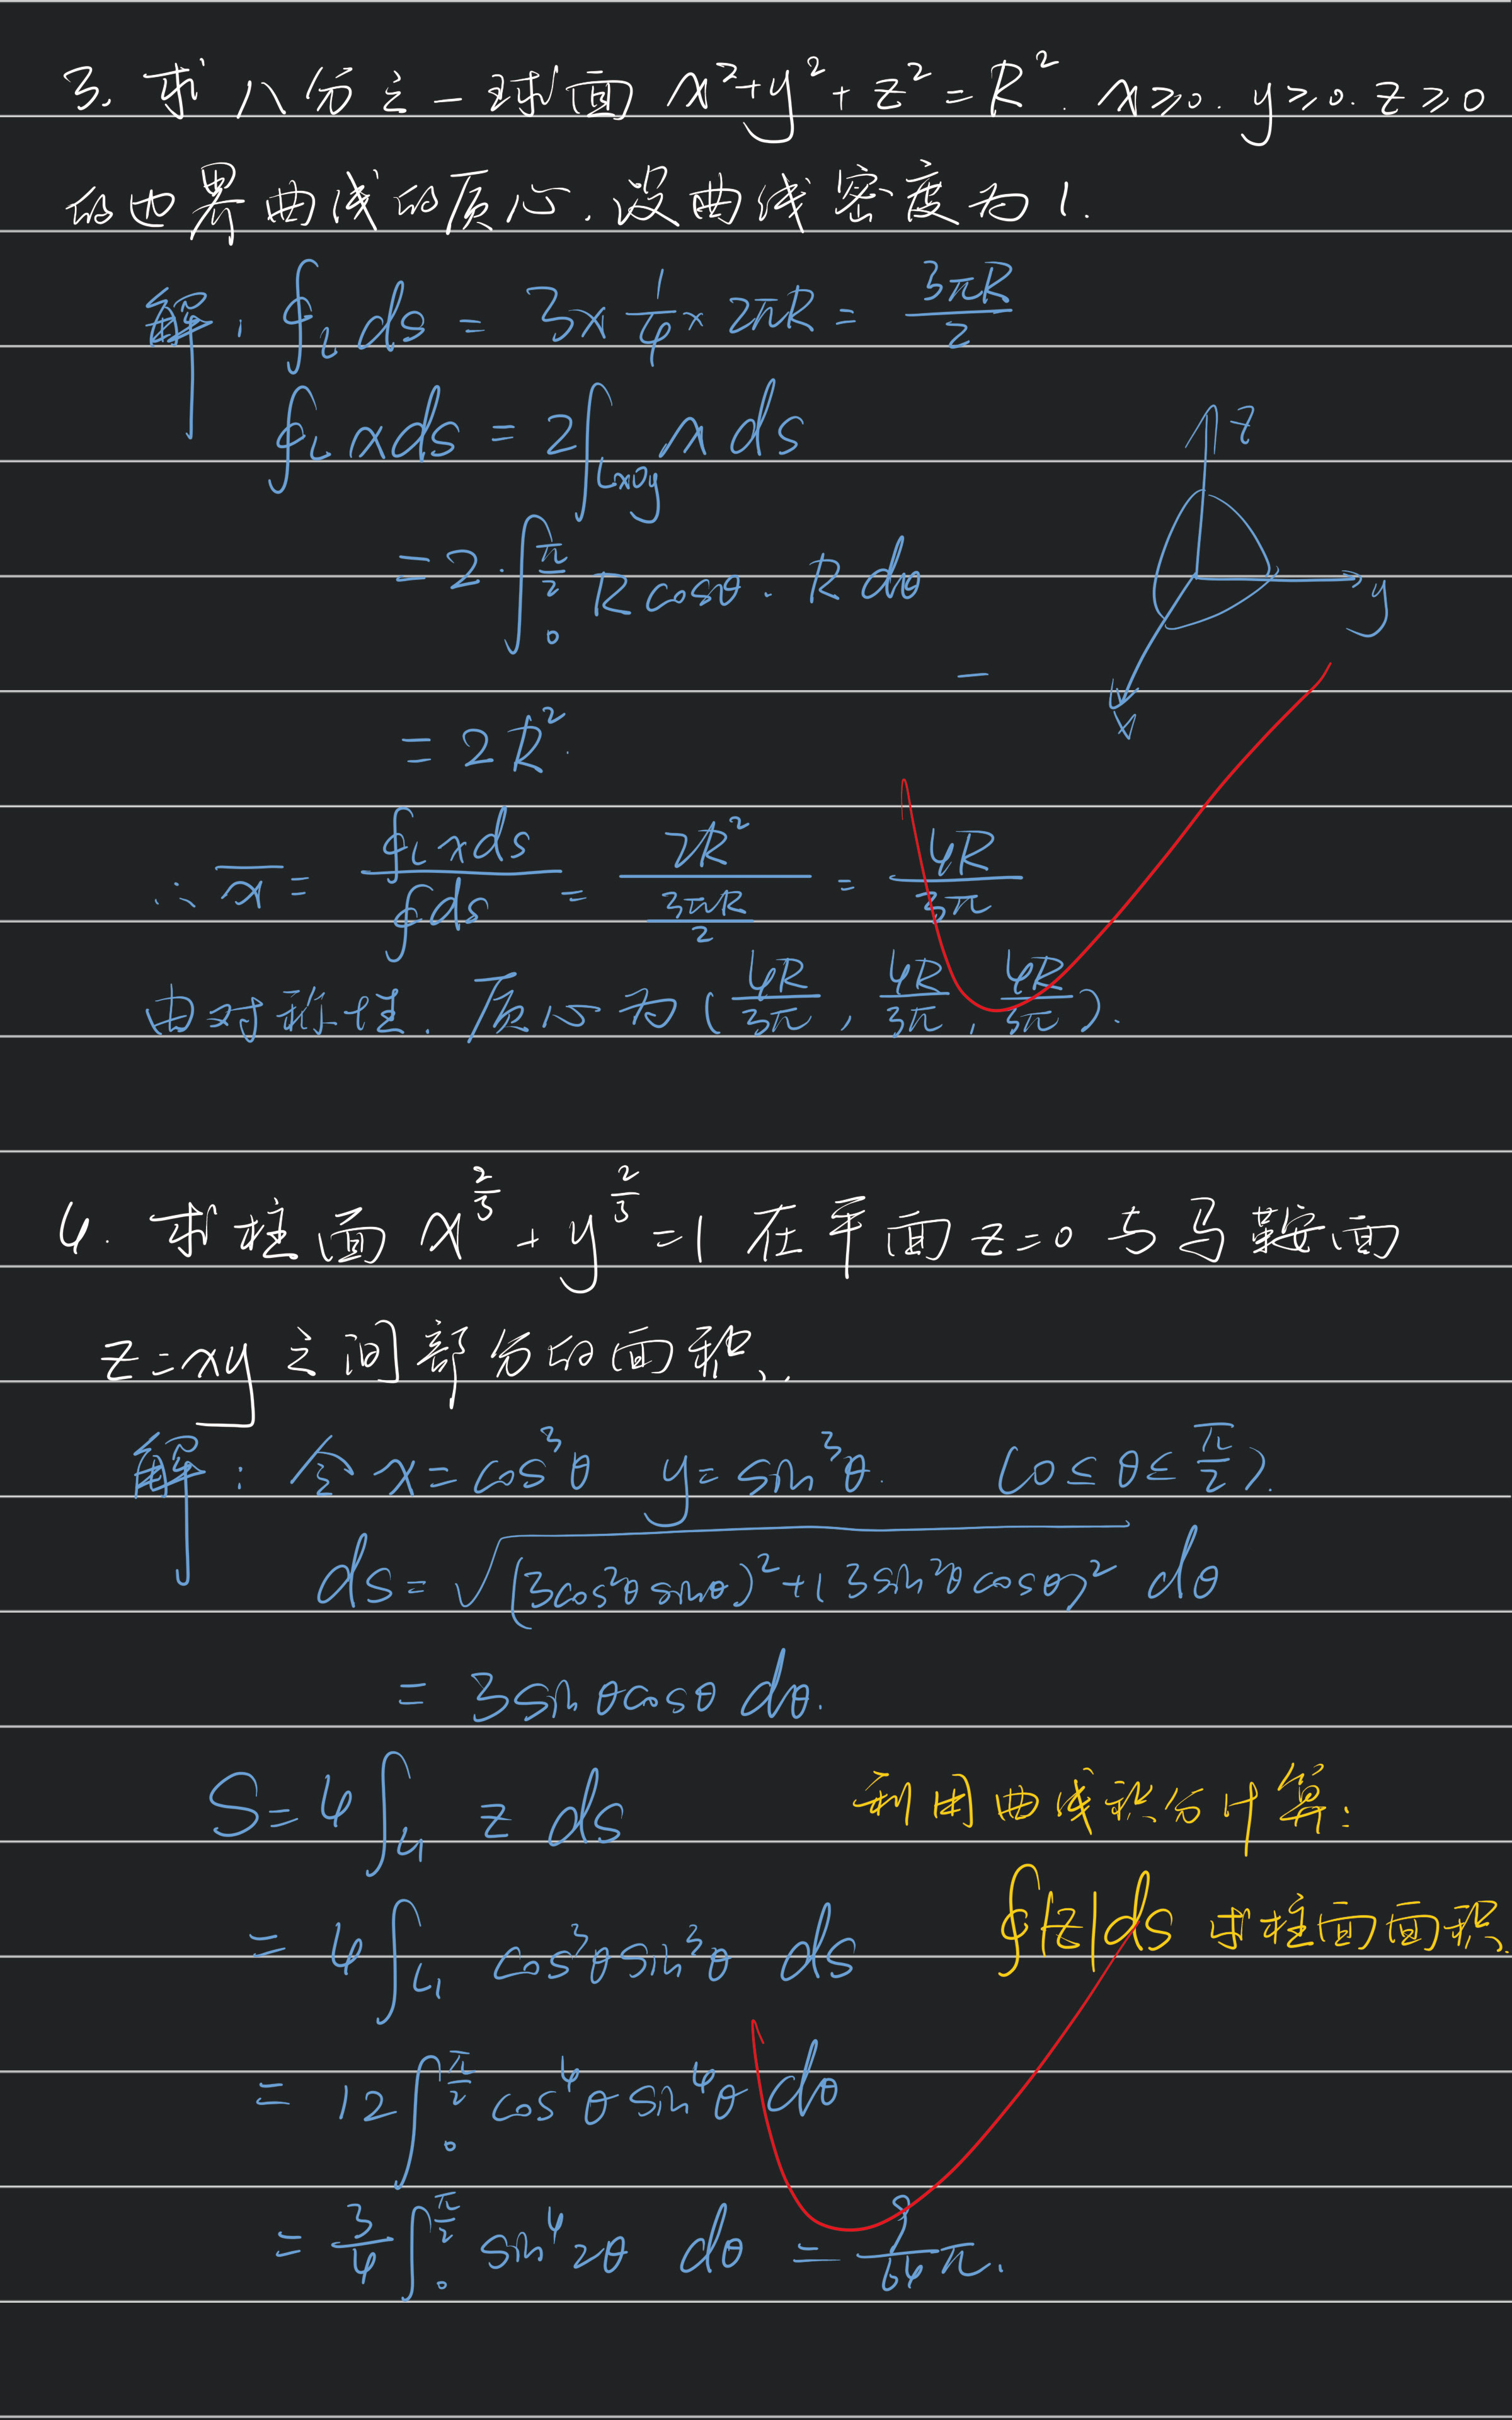 3. 求八分之一球面 x²+y²+z²=R². x≥0. y≥0. z≥0
的边界曲线的质心,设曲线密度为1.
解: ∮_L ds = 3×1/4×2πR = 3πR/2
∮_L xds = 2∫_{Lxoy} x ds
= 2·∫_0^{π/2} Rcosθ·Rdθ
= 2R².
∴ x̄ = ∮_L xds / ∮ds = 2R² / (3πR/2) = 4R/3π
由对称性, 质心为 (4R/3π, 4R/3π, 4R/3π).
z
y
x
4. 求柱面 x^{2/3}+y^{2/3}=1 在平面 z=0 与马鞍面
z=xy 之间部分的面积.
解: 令 x=cos³θ y=sin³θ. (0≤θ≤π/2).
ds=√((3cos²θsinθ)²+(3sin²θcosθ)²) dθ
= 3sinθcosθ dθ.
S=4∫_{L1} z ds
利用曲线积分计算:
= 4∫_{L1} cos³θsin³θ ds
∮|z|ds 求柱面面积.
= 12∫_0^{π/2} cos⁴θsin⁴θ dθ
= 3/4∫_0^{π/2} sin⁴2θ dθ = 9/64 π.